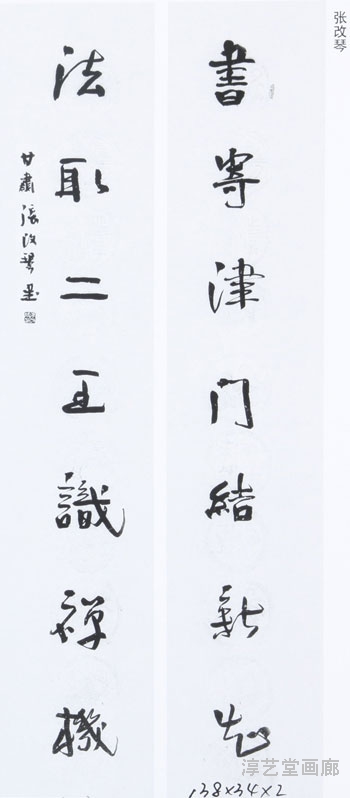 张改琴
書寄津门結新知
法取二王識禪機
甘肅張改琴
淳艺堂画廊
138×34×2